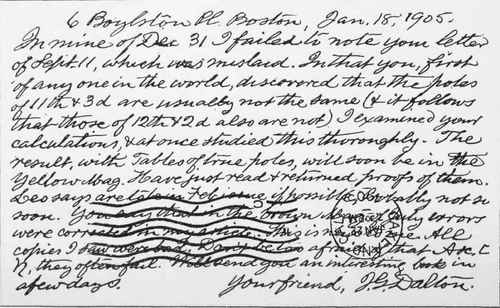 6 Boylston Pl. Boston, Jan. 18, 1905.
In mine of Dec 31 I failed to note your letter
of Sept. 11, which was mislaid. In that you, first
of any one in the world, discovered that the poles
of 11th & 3d are usually not the same (& it follows
that those of 12th & 2d also are not) I examined your
calculations, & at once studied this thoroughly. The
result, with Tables of true poles, will soon be in the
Yellow Mag. Have just read & returned proofs of them.
Leo says are to be in Feb. issue if possible, Probably not so
soon. You say that in the brown only errors
were corrected in my article. This is not true. All
copies I saw were bad. Don't be too afraid that Arc,
R, they often fail. Will send you an interesting book in
a few days. Your friend, J.G. Dalton.